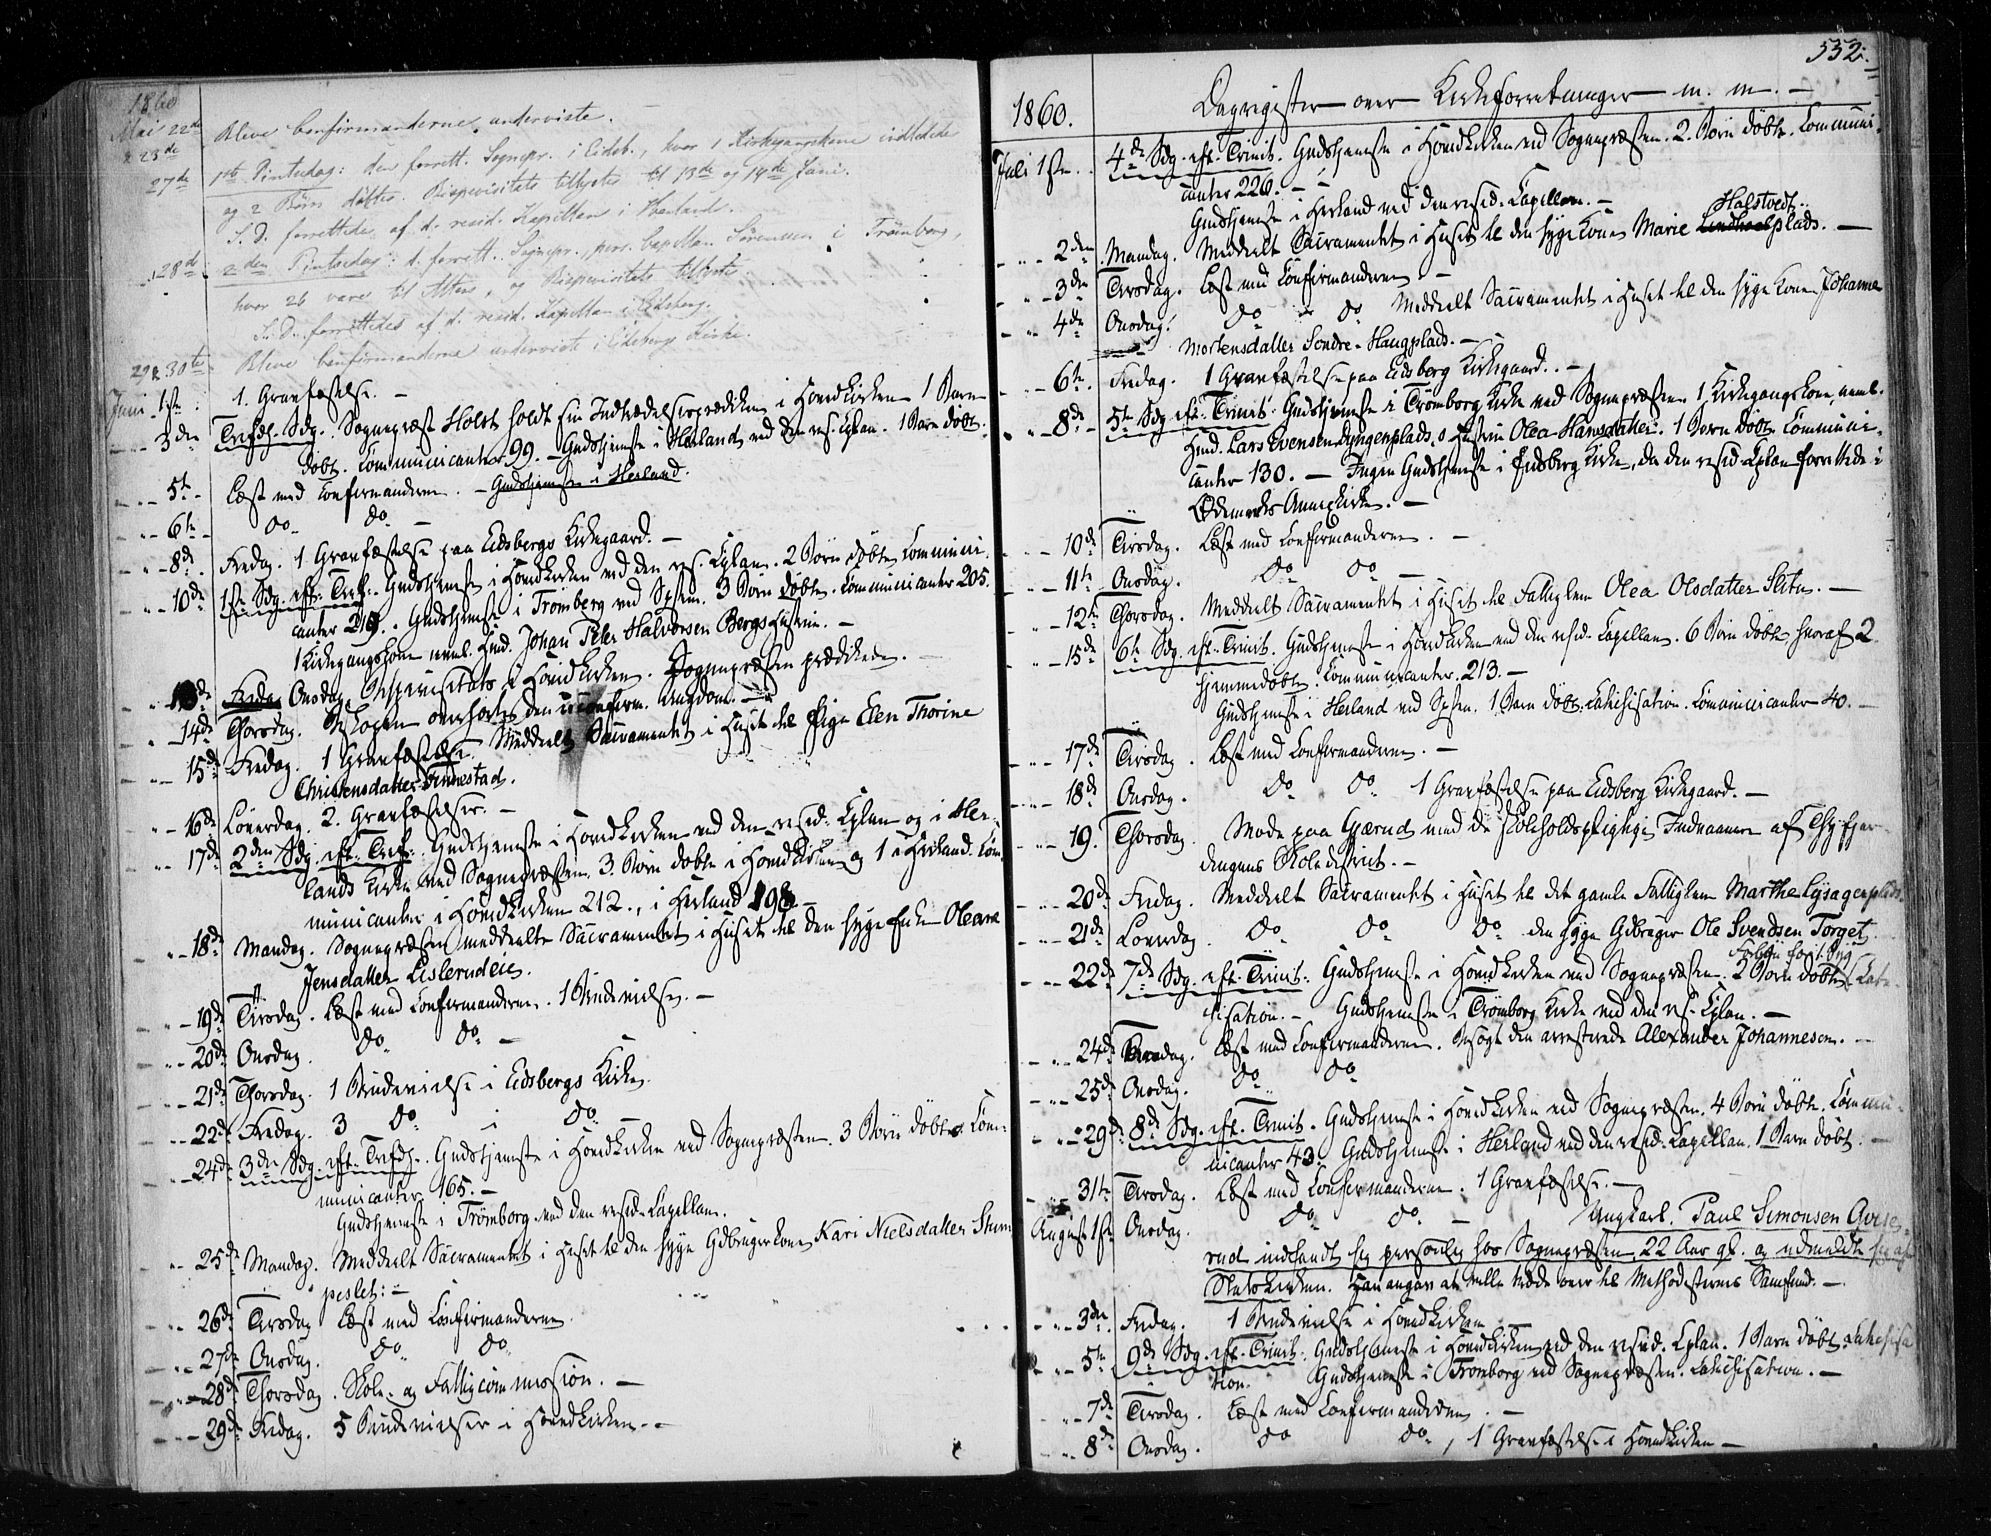 1860
Mai 22de Bleve Confirmanderne underviste.
& 23de
27de 1ste Pintsedag: den forrett. Sognepr. i Eidsb., hvor 1 Kirkegangskone indlededes
og 2 Børn døbtes. Bispevisitats tillystes til 13de og 14de Juni.
S. D. forrettedes af d. resid. Kapellan i Herland.
28de 2den Pintsedag: d. forrett. Sognepr., pers. Capellan Sørensen i Trømborg,
hvor 26 vare til Alters, og Bispevisitats tillyste
S. D. forrettedes af d. resid. Kapellan i Eidsberg.
29 & 30te Bleve Confirmanderne underviste i Eidsbergs Kirke.
Juni 1ste 1. Gravfæstelse. –
3die Trefds. Sdg. Sognepræst Holst holdt sin Indtrædelsesprædiken i Hovedkirken 1 Barn
døbt. Communicanter 99. – Gudstjeneste i Herland ved den res. Cplan. 1 Barn døbt.
5te Læst med Confirmanderne. – Gudstjeneste i Herland.
6te do do –
8de Fredag. 1 Gravfæstelse paa Eidsbergs Kirkegaard. –
10de 1ste Sdg. eft. Tref. Gudstjeneste i Hovedkirken ved den res. Cplan. 2 Børn døbte. Communi-
canter 210. Gudstjeneste i Trømborg ved Spsten. 3 Børn døbte. Communicanter 205.
1 Kirkegangskone neml. Hmd. Johan Peter Halvorsen Bergs Hustru. –
13de Fredag Onsdag. Bispevisitats i Hovedkirken. Sognepræsten prædikede. –
14de Thorsdag. Biskopen overhørte den uconfirm. Ungdom. –
15de Fredag. 1 Gravfæstelse. Meddeelt Sacramentet i Huset til Pige Elen Thorine
Christensdatter Finnestad.
16de Løverdag. 2. Gravfæstelser. –
17de 2den Sdg. eft. Tref. Gudstjeneste i Hovedkirken ved den resid. Cplan og i Her-
lands Kirke ved Sognepræsten. 3. Børn døbte i Hovedkirken og 1 i Herland. Com-
municanter i Hovedkirken 212., i Herland 198 –
18de Mandag. Sognepræsten meddeelte Sacramentet i Huset til den syge Enke Oleane
Jensdatter Lislerudeie.
19de Tirsdag. Læst med Confirmanderne. 1 Brudevielse. –
20de Onsdag. do do –
21de Thorsdag. 1 Brudevielse i Eidsbergs Kirke.
22de Fredag. 3 do i do –
24de 3die Sdg. eft. Trefds. Gudstjeneste i Hovedkirken ved Sognepræsten. 3 Børn døbte. Com-
municanter 165. –
Gudstjeneste i Trømborg ved den resid. Capellan.
25de Mandag. Meddeelt Sacramentet i Huset til den syge Gdbrugerkone Kari Nielsdatter Skum-
peslet: –
26de Tirsdag Læst med Confirmanderne.
27de Onsdag. do do
28de Thorsdag. Skole- og Fattigcommission. –
29de Fredag. 5 Brudevielser i Hovedkirken. –
532.
1860. Dagregister over Kirkeforretninger m. m. –
Juli 1ste. 4de Sdg. eft. Trinit. Gudstjeneste i Hovedkirken ved Sognepræsten. 2. Børn døbte. Communi-
canter 226. –
Gudstjeneste i Herland ved den resid. Capellan. –
Halstvedt
2den Mandag. Meddeelt Sacramentet i Huset til den syge Kone Marie plads. –
3die Tirsdag. Læst med Confirmanderne –
4de Onsdag. do – do Meddeelt Sacramentet i Huset til den syge Kone Johanne
Mortensdatter Sondre-Haugplads. –
6te Fredag. 1 Gravfæstelse paa Eidsberg Kirkegaard. –
8de 5te Sdg. eft. Trinit. Gudstjeneste i Trømborg Kirke ved Sognepræsten 1 Kirkegangskone, neml.
Hmd. Lars Evensen Dyngenplads's Hustru Olea Hansdatter. 1 Barn døbt. Communi-
canter 130. – Ingen Gudstjeneste i Eidsberg Kirke, da den resid. Cplan forrettede i
Ødemarks Annexkirke. –
10de Tirsdag. Læst med Confirmanderne. –
11te Onsdag. do do –
12te Thorsdag. Meddeelt Sacramentet i Huset til Fattiglem Olea Olsdatter Slitu. –
15de 6te Sdg. eft. Trinit. Gudstjeneste i Hovedkirken ved den resid. Capellan. 6 Børn døbte hvoraf 2
hjemmedøbte. Communicanter. 213. –
Gudstjeneste i Herland ved Spsten. 1 Barn døbt. Catechisation. Communicanter 40. –
17de Tirsdag. Læst med Confirmanderne. –
18de Onsdag. do do 1 Gravfæstelse paa Eidsberg Kirkegaard. –
19. Thorsdag. Møde paa Gjærud med de skoleholdspligtige Indvaanere af Thyfjer-
dingens Skoledistrict. –
20de Fredag. Meddeelt Sacramentet i Huset til det gamle Fattiglem Marthe Lysagerplads.
21de Løverdag. do do do den syge Gdbruger Ole Svendsen Torget
Forbøn for 1 Syg
22de 7de Sdg. eft. Trinit. Gudstjeneste i Hovedkirken ved Sognepræsten. 2 Børn døbte. Cate-
chisation. – Gudstjeneste i Trømborg Kirke ved den res. Cplan. –
24de Tirsdag. Læst med Confirmanderne. Besøgt den arresterede Alexander Johannesen. –
25de Onsdag. do do
29de 8de Sdg. eft. Trinit. Gudstjeneste i Hovedkirken ved Sognepræsten. 4 Børn døbte. Commu-
nicanter 43. Gudstjeneste i Herland ved den resid. Capellan. 1 Barn døbt. –
31te Tirsdag. Læst med Confirmanderne. 1 Gravfæstelse. –
August 1ste Onsdag. do do – Ungkarl. Paul Simonsen Gvise-
rud indfandt sig personlig hos Sognepræsten, 22 Aar gl. og udmeldte sig af
Statskirken. Han angav at ville træde over til Methodisternes Samfund. –
3die Fredag. 1 Brudevielse i Hovedkirken
5te 9de Sdg. eft. Trinit. Gudstjeneste i Hovedkirken ved den resid. Cplan. 1 Barn døbt. Catechisa
tion. Gudstjeneste i Trømborg ved Sognepræsten. Catechisation. –
7de Tirsdag. Læst med Confirmanderne. –
8de Onsdag. do do, 1 Gravfæstelse i Hovedkirken –